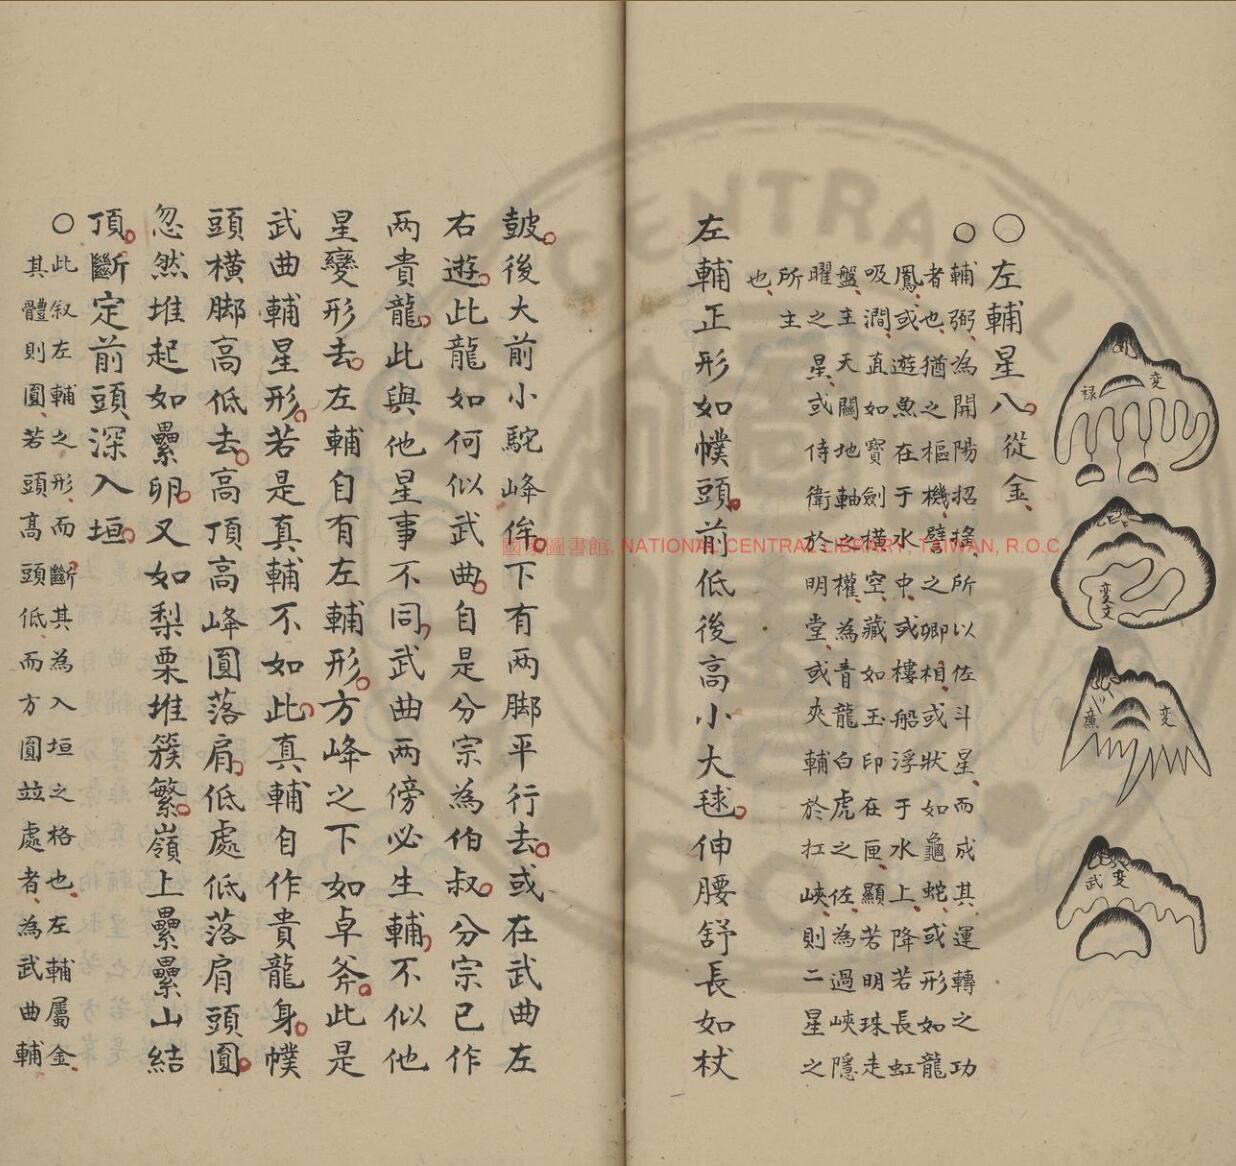 變
祿
變
文
變
廉
變
武
○左輔星八從金
○輔弼為開陽招搖所以佐斗星而成其運轉之功
者也猶之樞機譬之卿相或狀如龜蛇或形如龍
鳳或遊魚在于水中或樓船浮于水上降若長虹
吸澗直如寶劍橫空藏如玉印在匣顯若明珠走
盤主天關地軸之權為青龍白虎之佐為過峽隱
曜之星或侍衛於明堂或夾輔於扛峽則二星之
所主
也
左輔正形如幞頭前低後高小大毬伸腰舒長如杖
鼓後大前小駝峰侔下有两脚平行去或在武曲左
右遊此龍如何似武曲自是分宗為伯叔分宗已作
两貴龍此與他星事不同武曲两傍必生輔不似他
星變形去左輔自有左輔形方峰之下如卓斧此是
武曲輔星形若是真輔不如此真輔自作貴龍身幞
頭橫脚高低去高頂高峰圓落肩低處低落肩頭圓
忽然堆起如纍卵又如梨栗堆簇繁嶺上纍纍山結
頂斷定前頭深入垣
○此叙左輔之形而斷其為入垣之格也左輔屬金
其體則圓若頭高頭低而方圓竝處者為武曲輔
國家圖書館, NATIONAL CENTRAL LIBRARY, TAIWAN, R.O.C.